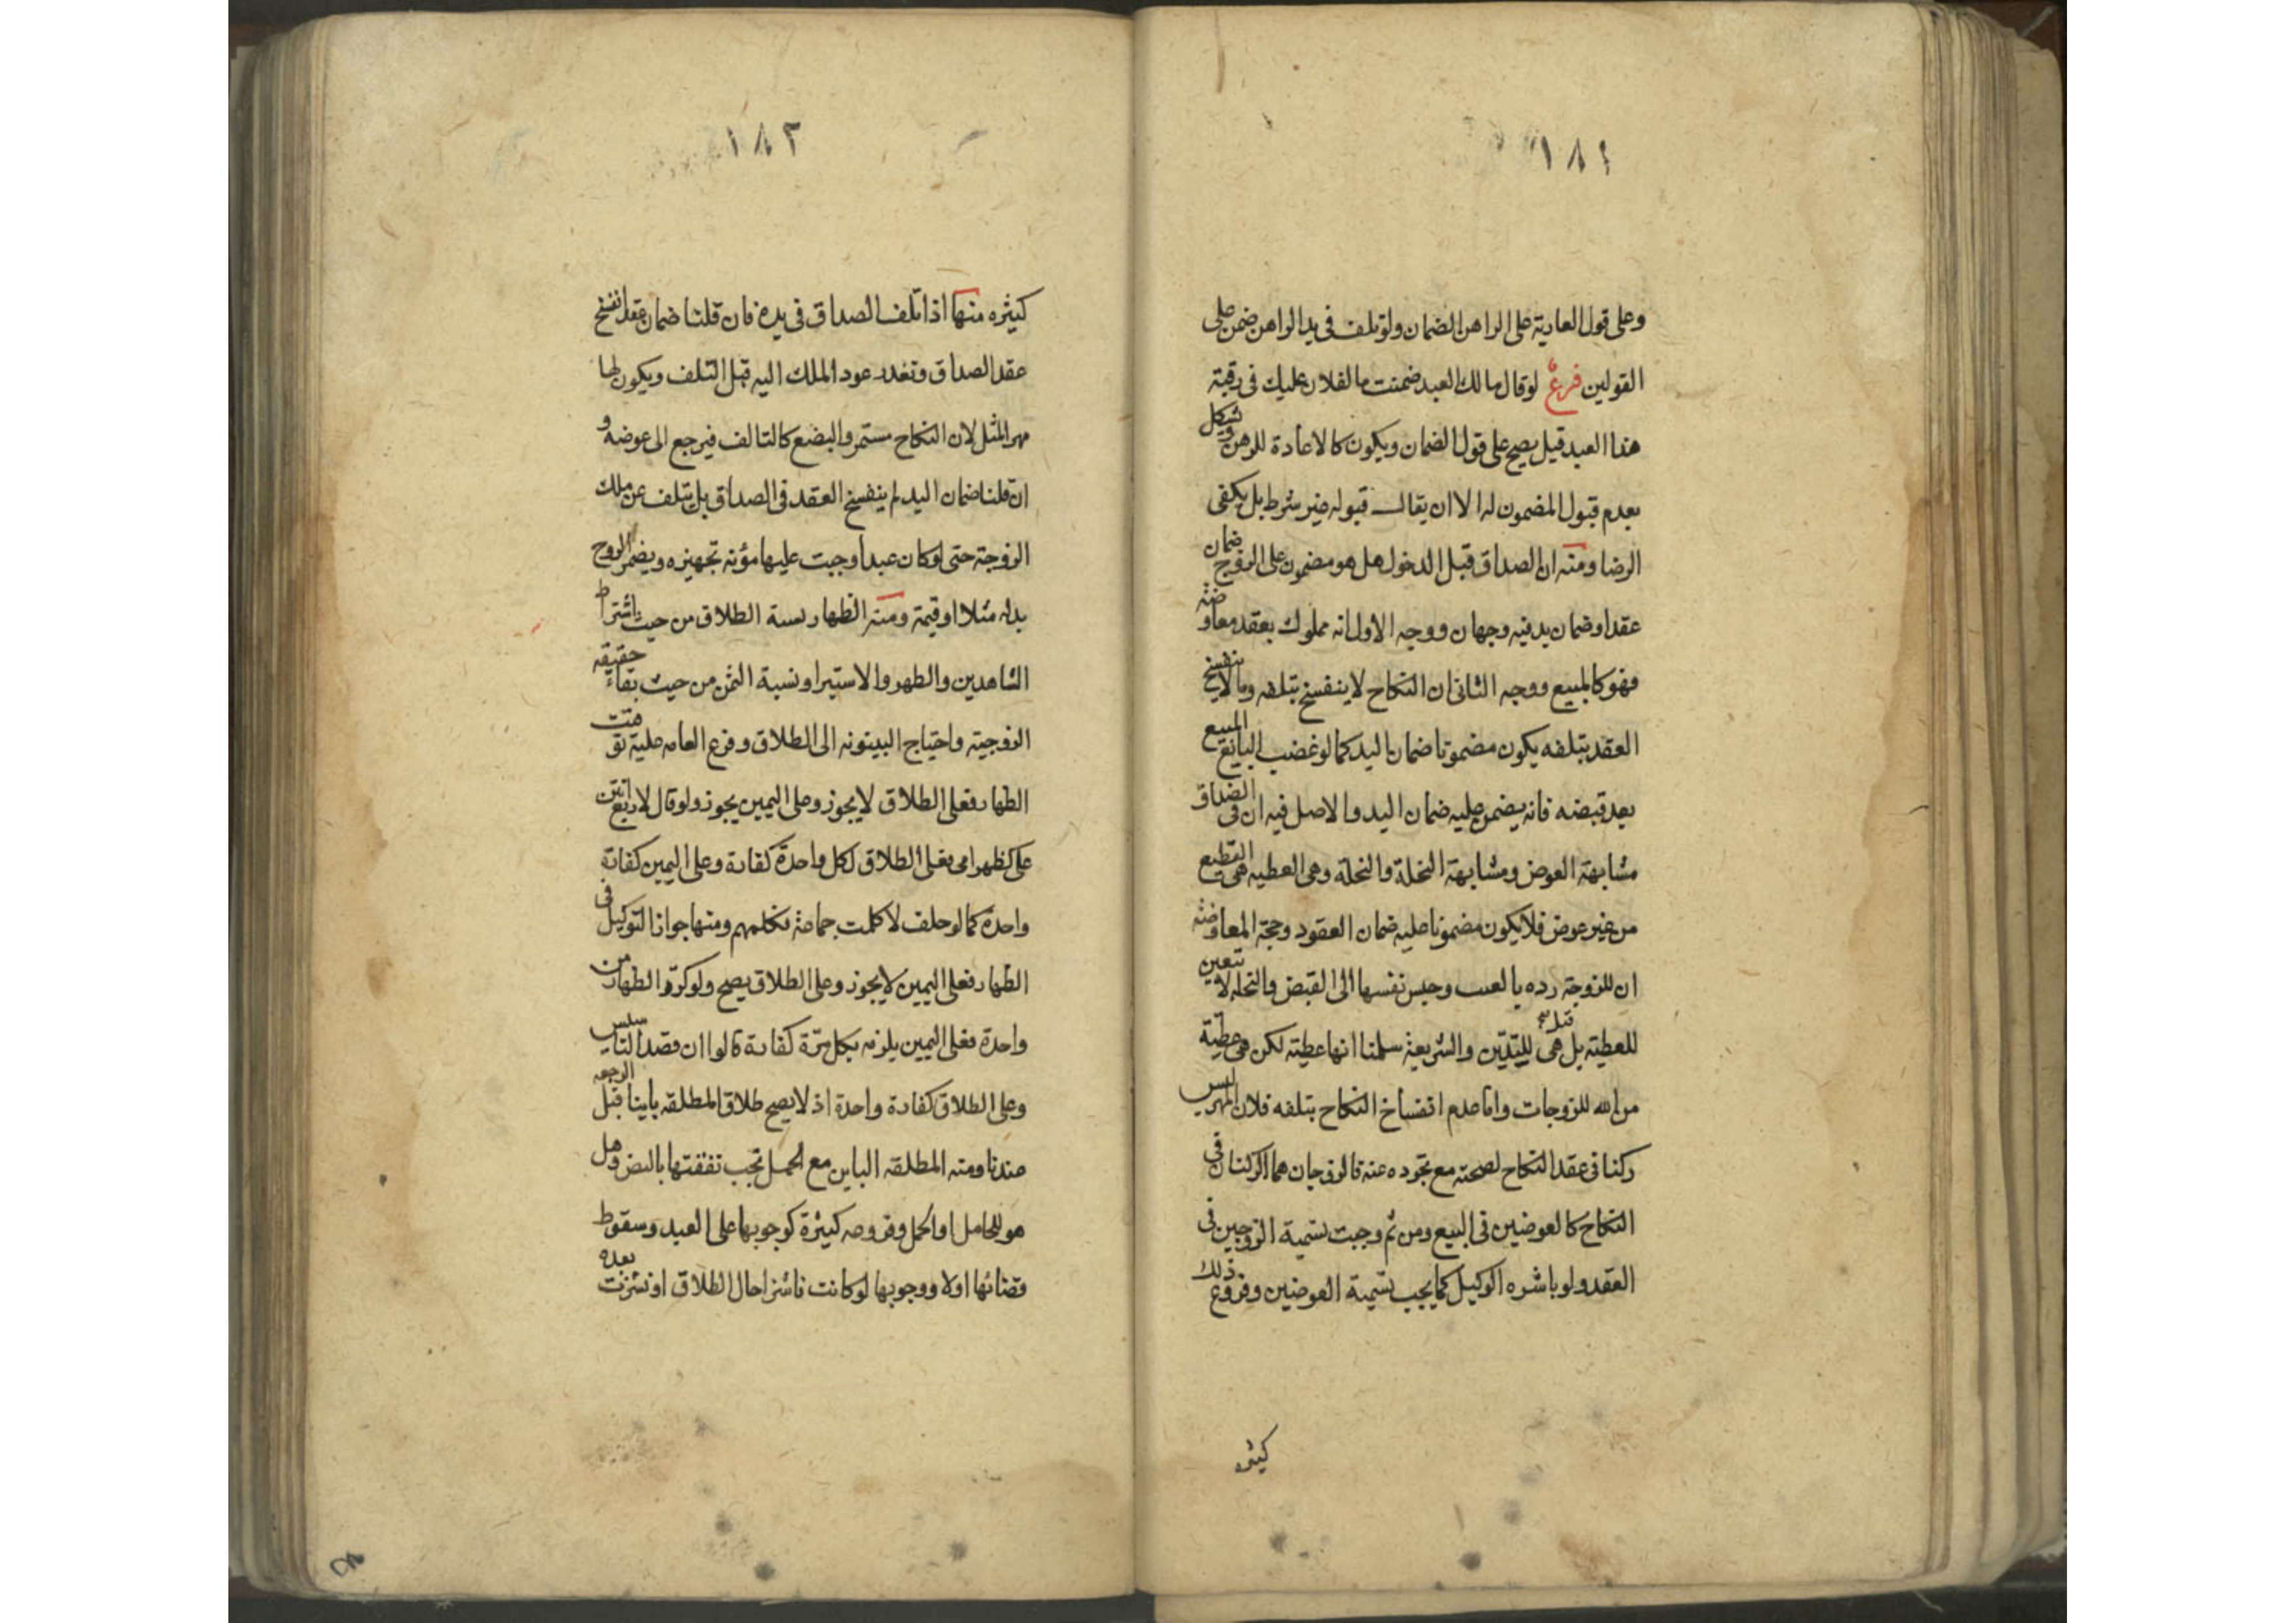 ١٨١
وعلى قول العارية على الراهن الضمان ولو تلف في يد الراهن ضمن على
القولين فرع لو قال مالك العبد ضمنت ما لفلان عليك في رقبة
هذا العبد قيل يصح على قول الضمان ويكون كالاعادة للرهن ويشكل
بعدم قبول المضمون له الا ان يقال قبوله غير شرط بل يكفي
الرضا ومنه ان الصداق قبل الدخول هل هو مضمون على الزوج ضمان
عقد او ضمان يد فيه وجهان ووجه الاول انه مملوك بعقد معاوضة
فهو كالمبيع ووجه الثاني ان النكاح لا ينفسخ بتلفه وما لا ينفسخ
العقد بتلفه يكون مضمونا ضمان اليد كما لو غضب البايع المبيع
بعد قبضه فانه يضمن عليه ضمان اليد والاصل فيه ان في الصداق
مشابهة العوض ومشابهة النحلة والنحلة وهي العطيه هي
من غير عوض فلا يكون مضمونا عليه ضمان العقود وحجة المعاوضة
ان للزوجة رده بالعيب وحبس نفسها الى القبض والنحله لا تتعين
للعطية بل هي للتدين والشريعة سلمنا انها عطية لكن هي عطية
من الله للزوجات واما عدم انفساخ النكاح بتلفه فلان المهر ليس
ركنا في عقد النكاح لصحته مع تجوده عنه فالزوجان هما الركنان في
النكاح كالعوضين في البيع ومن ثم وجبت تسمية الزوجين في
العقد ولو باشره الوكيل كما يجب تسمية العوضين وفروع ذلك
كثيره
١٨٢
كثيره منها اذا تلف الصداق في يده فان قلنا ضمان عقد انفسخ
عقد الصداق وتقدر عود الملك اليه قبل التلف ويكون لها
مهر المثل لان النكاح مستمر والبضع كالتالف فيرجع الى عوضه و
ان قلنا ضمان اليد لم ينفسخ العقد في الصداق بل يتلف عن ملك
الزوجة حتى لو كان عبدا وجبت عليها مؤنة تجهيزه ويضمن الزوج
بدله مثلا او قيمة ومنه الظهار نسبة الطلاق من حيث اشتراط
الشاهدين والطهر والاستبرا ونسبة اليمن من حيث بقاء حقيقه
الزوجية واحتياج البينونه الى الطلاق وفرع العامه عليه توقيت
الظهار فعلى الطلاق لا يجوز وعلى اليمين يجوز ولو قال لاربع انتن
على كظهر امى فعلى الطلاق لكل واحدة كفارة وعلى اليمين كفارة
واحدة كما لو حلف لا كلمت جماعة فكلمهم ومنها جواز التوكيل في
الظهار فعلى اليمين لا يجوز وعلى الطلاق يصح ولو كرر الظهار من
واحدة فعلى اليمين يلزمه بكل مرة كفارة قالوا ان قصد التاسيس
وعلى الطلاق كفارة واحدة اذ لا يصح طلاق المطلقه باينا قبل الرجعه
عندنا ومنه المطلقه الباين مع الحمل تجب نفقتها بالنص وهل
هو للحامل او الحمل وفروعه كثيرة كوجوبها على العبد وسقوط
قضائها اولا ووجوبها لو كانت ناشزا حال الطلاق او نشزت بعده